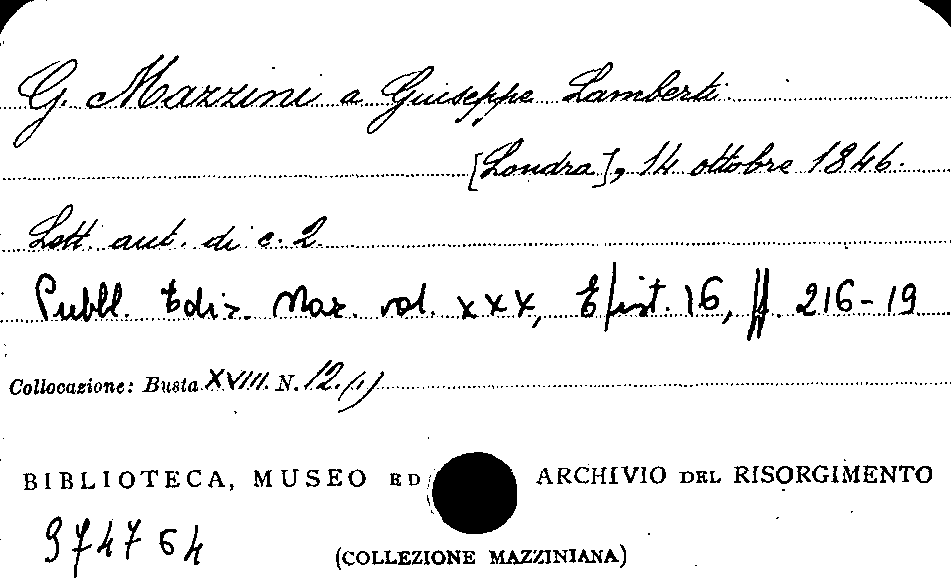 G. Mazzini a Giuseppe Lamberti
[Londra], 14 ottobre 1846.
Lett. aut. di c. 2
Pubbl. Ediz. Naz. vol. XXX, Epist. 16, pp. 216-19
Collocazione: Busta XVIII. N. 12.(1)
BIBLIOTECA, MUSEO ED ARCHIVIO DEL RISORGIMENTO
974764
(COLLEZIONE MAZZINIANA)